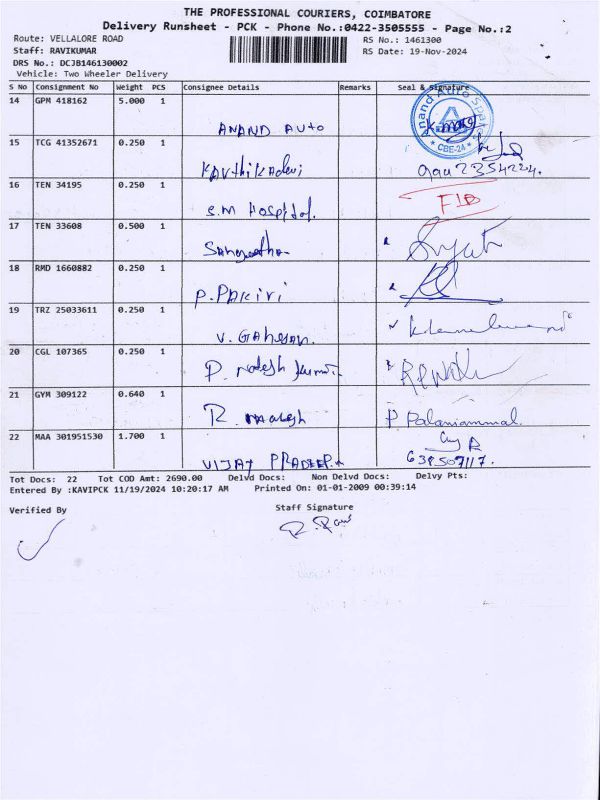 THE PROFESSIONAL COURIERS, COIMBATORE
Delivery Runsheet - PCK - Phone No.:0422-3505555 - Page No.:2
Route: VELLALORE ROAD RS No.: 1461300
Staff: RAVIKUMAR RS Date: 19-Nov-2024
DRS No.: DCJB146130002
Vehicle: Two Wheeler Delivery
S No Consignment No Weight PCS Consignee Details Remarks Seal & Signature
14 GPM 418162 5.000 1
ANAND AUTO
Anand Auto Spares
* CBE-24 *
15 TCG 41352671 0.250 1
16 TEN 34195 0.250 1
S.M Hospital.
17 TEN 33608 0.500 1
18 RMD 1660882 0.250 1
P. PAKIRI
19 TRZ 25033611 0.250 1
V. GAnesan.
20 CGL 107365 0.250 1
21 GYM 309122 0.640 1
P Palaniammal.
22 MAA 301951530 1.700 1
VIJAY PRADEEP.
Tot Docs: 22 Tot COD Amt: 2690.00 Delvd Docs: Non Delvd Docs: Delvy Pts:
Entered By :KAVIPCK 11/19/2024 10:20:17 AM Printed On: 01-01-2009 00:39:14
Verified By Staff Signature